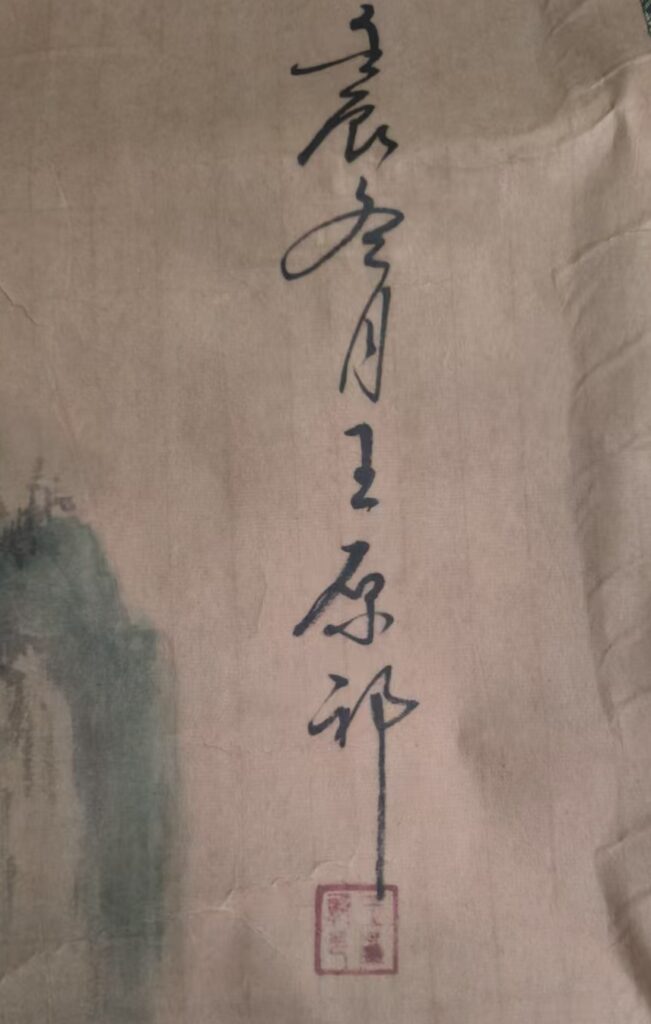 壬辰冬月王原祁